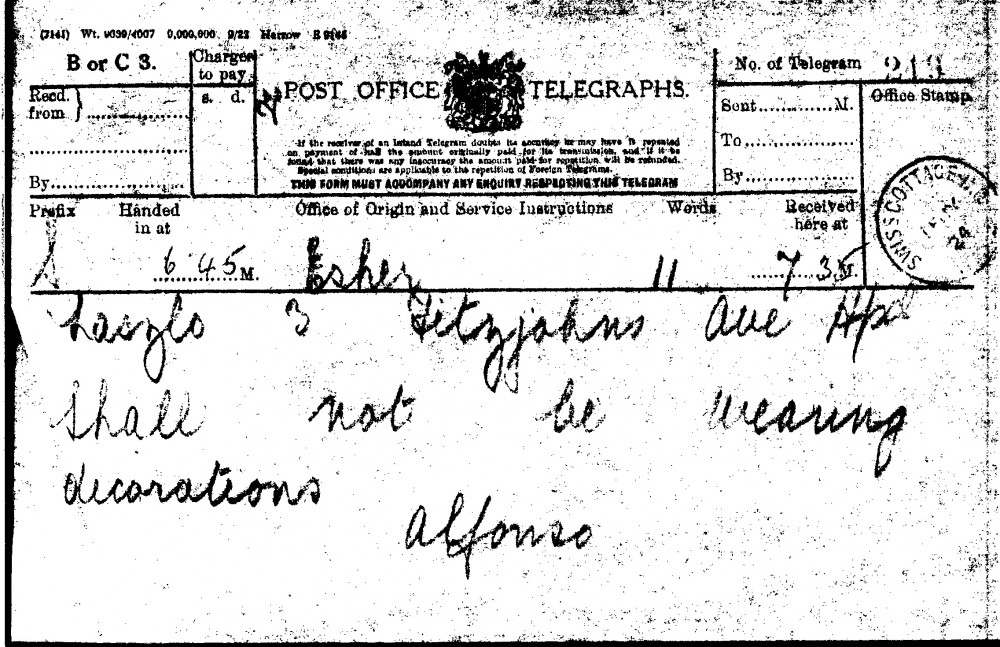 (7141) Wt. 9639/4007 0,000,000. 9/23 Harrow
B or C 3.
Charges to pay
s. d.
POST OFFICE TELEGRAPHS.
No. of Telegram 213
Office Stamp.
Recd. from
By
If the receiver of an Inland Telegram doubts its accuracy he may have it repeated
on payment of half the amount originally paid for its transmission, and if it be
found that there was any inaccuracy the amount paid for repetition will be refunded.
Special conditions are applicable to the repetition of Foreign Telegrams.
THIS FORM MUST ACCOMPANY ANY ENQUIRY RESPECTING THIS TELEGRAM
Sent M.
To
By
Prefix Handed in at Office of Origin and Service Instructions Words Received here at
S 6.45 M. Esher 11 7 35 M
SWISS COTTAGE
Laszlo 3 Fitzjohns Ave Hpd
Shall not be wearing
decorations
Alfonso